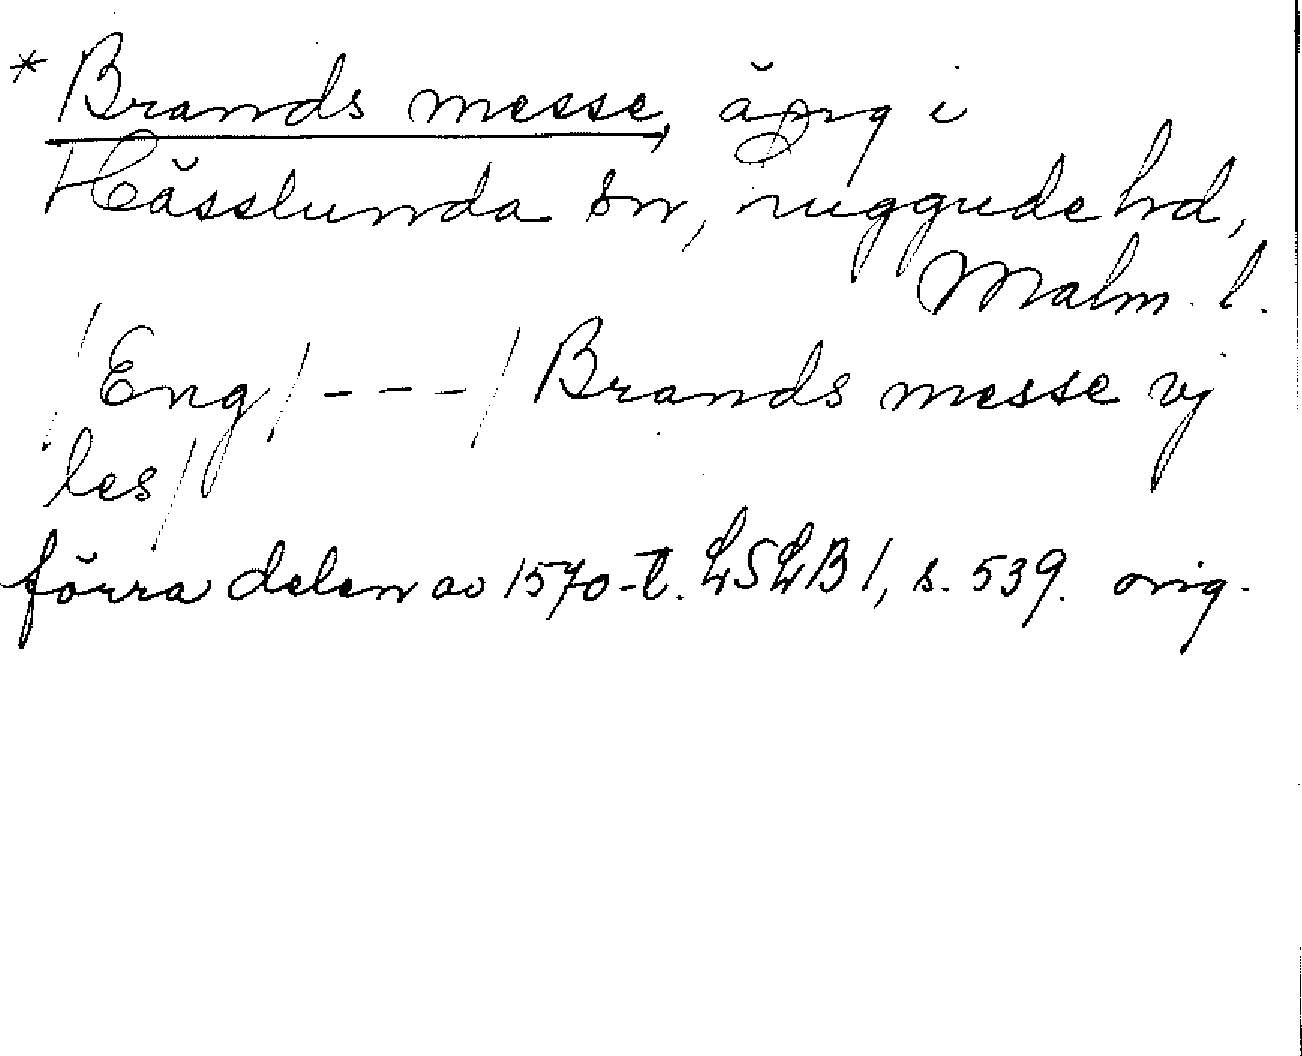 * Brands messe, äng i
Hässlunda sn, Luggude hd,
Malm. l.
/Eng/---/Brands messe vj
les/
förra delen av 1570-t. LSLB 1, s. 539. orig.